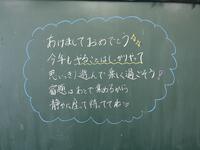 あけましておめでとう
今年もやることはしっかりやって
思いっきり遊んで楽しく過ごそう!
宿題はあとで集めるから
静かに座って待っててね